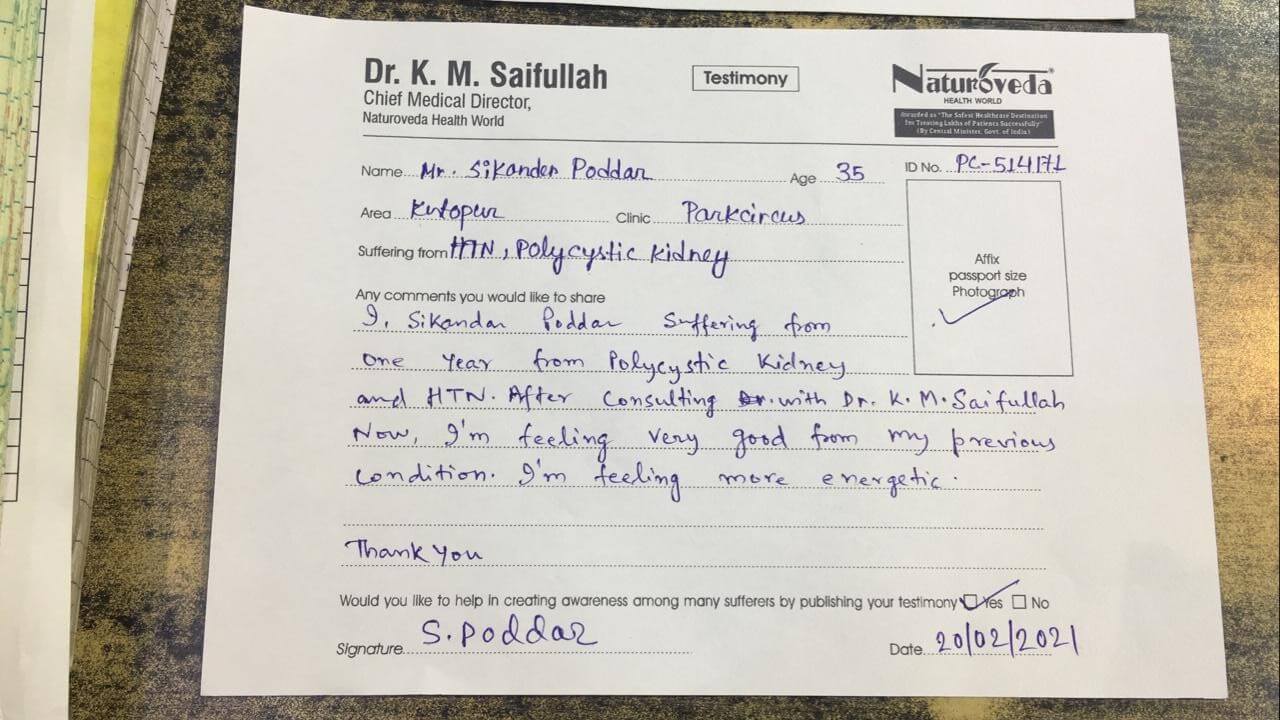 Dr. K. M. Saifullah
Chief Medical Director,
Naturoveda Health World
Testimony
Naturoveda®
HEALTH WORLD
Awarded as "The Safest Healthcare Destination
for Treating Lakhs of Patients Successfully"
(By Central Minister, Govt. of India)
Name Mr. Sikander Poddar Age 35 ID No. PC-514171
Area Kutopur Clinic Parkcircus
Suffering from HTN, Polycystic Kidney
Affix
passport size
Photograph
Any comments you would like to share
I, Sikandar Poddar Suffering from
one Year from Polycystic Kidney
and HTN. After Consulting Dr. with Dr. K. M. Saifullah
Now, I'm feeling very good from my previous
condition. I'm feeling more energetic.
Thank You
Would you like to help in creating awareness among many sufferers by publishing your testimony Yes No
Signature S. Poddar Date 20/02/2021